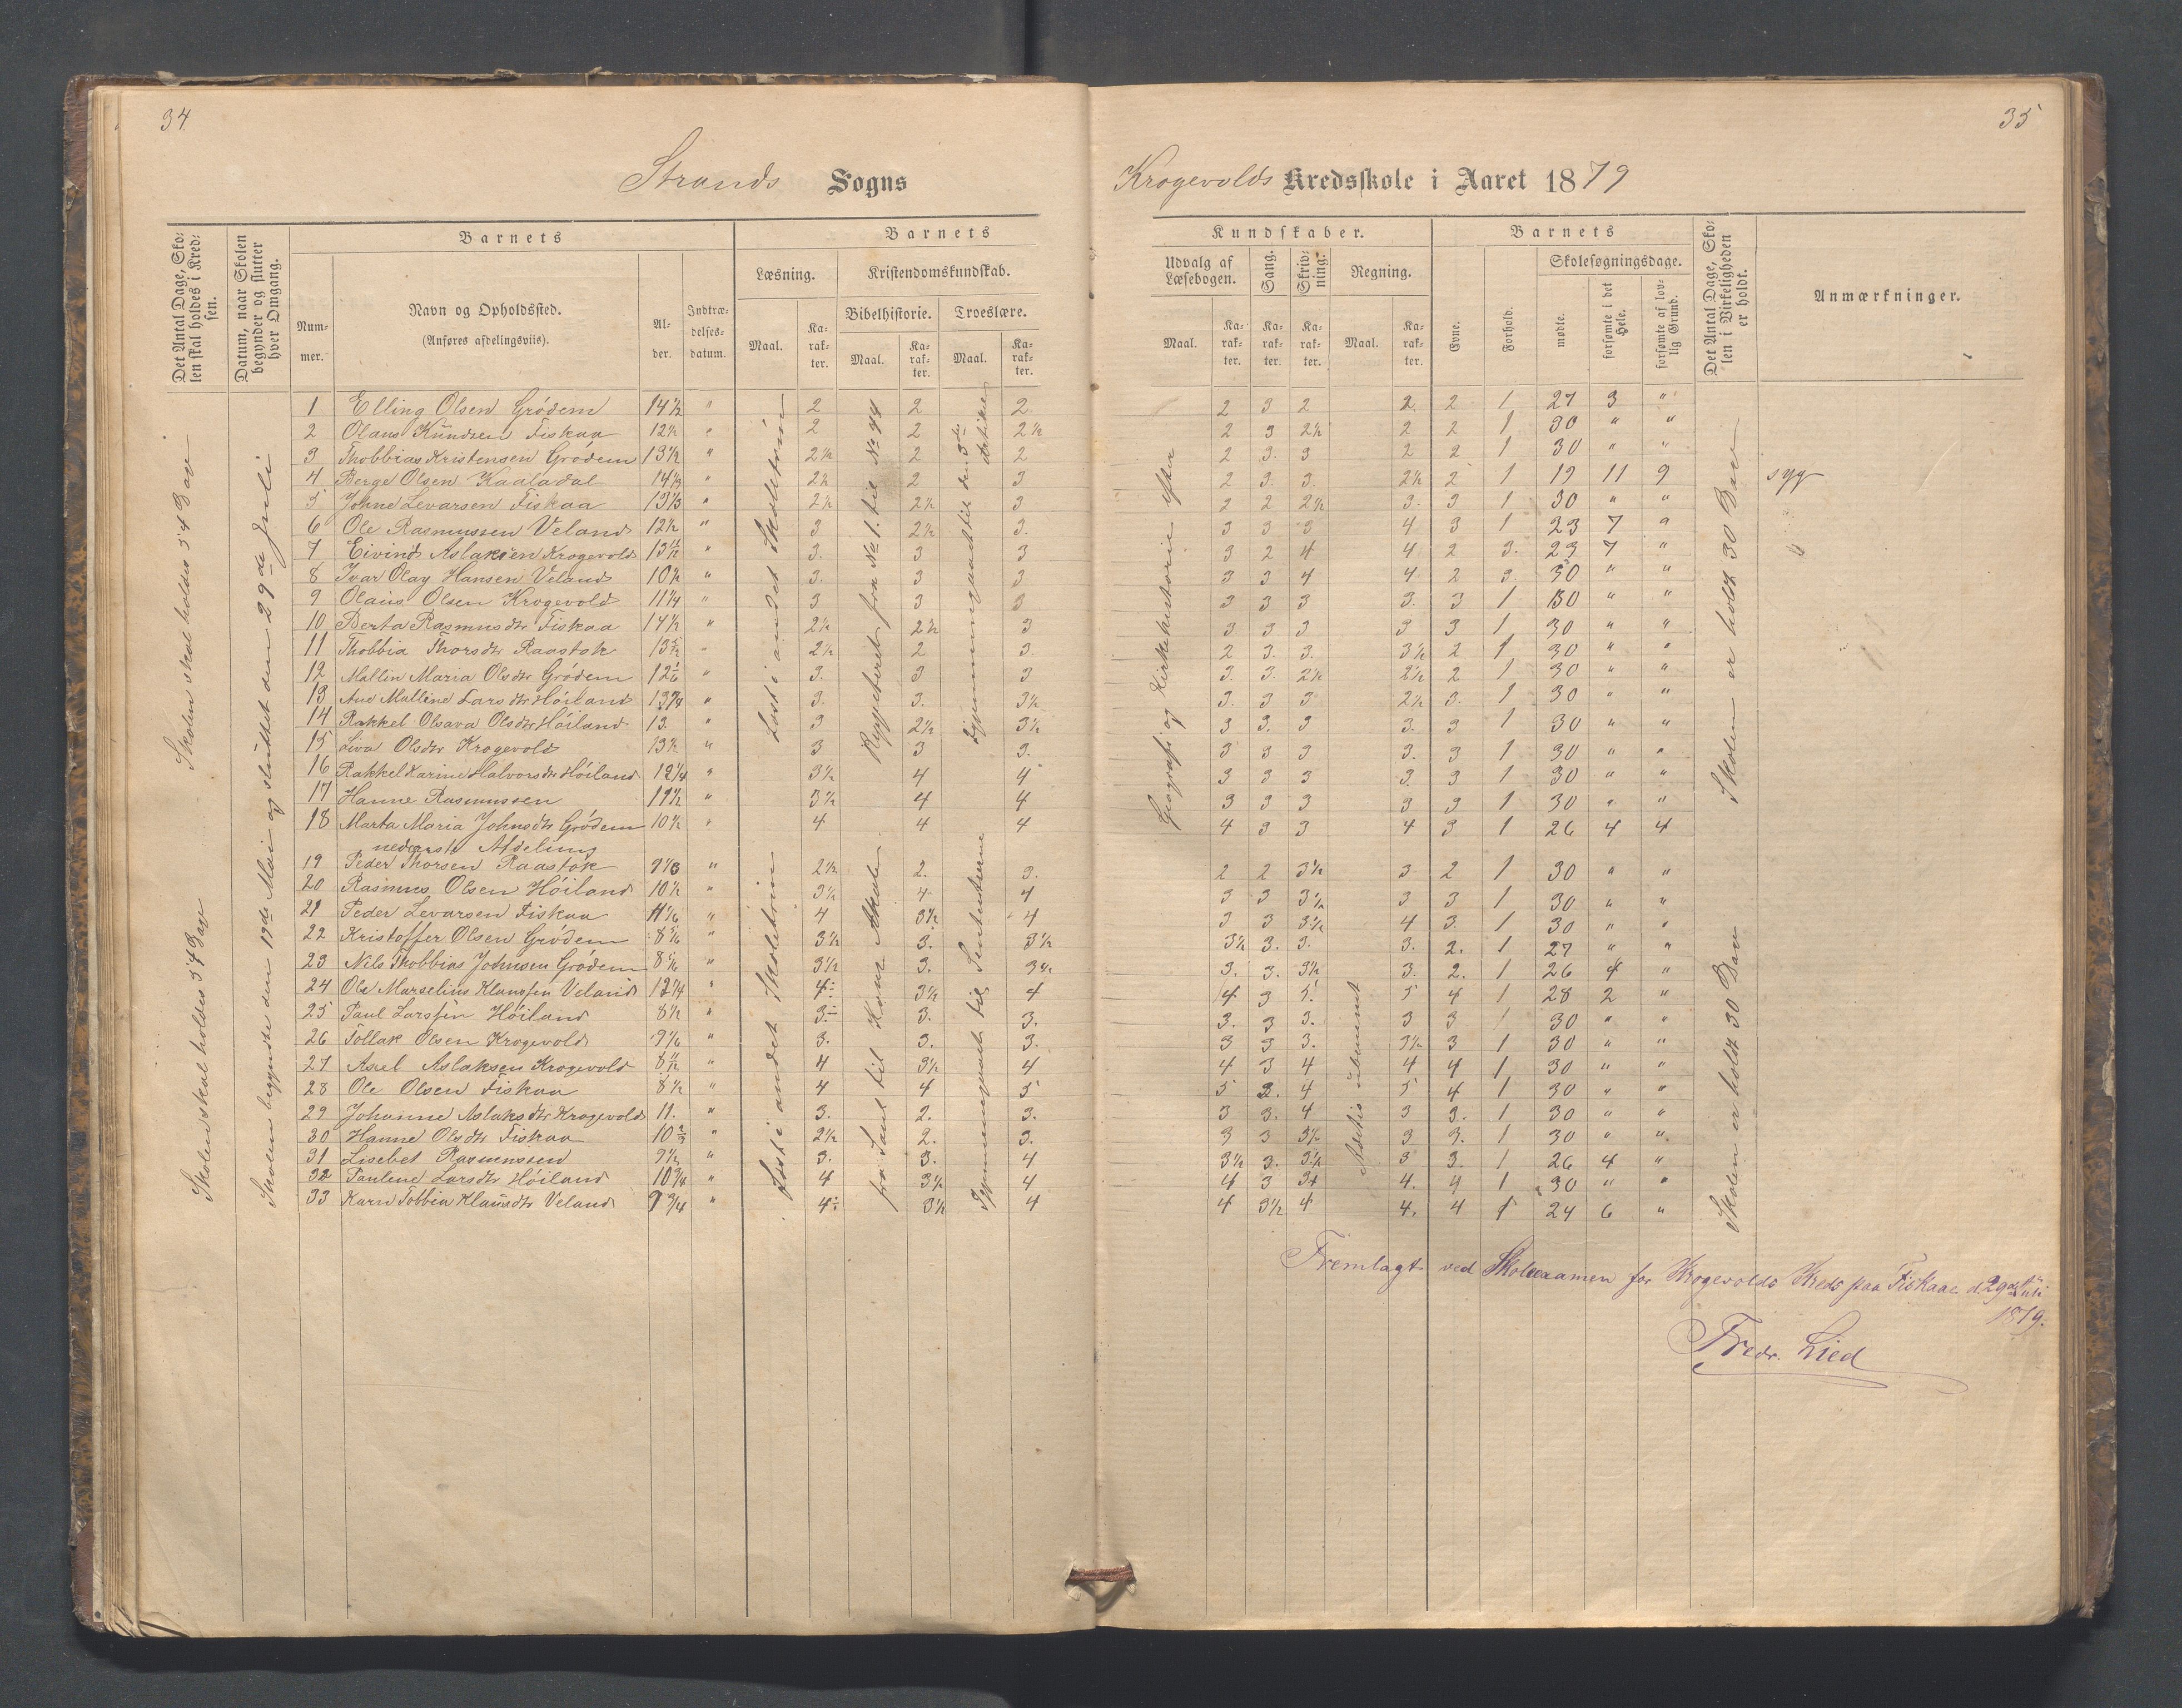 34
35
Strands Sogns
Krogevolds Kredsskole i Aaret 1879
Det Antal Dage, Skolen skal holdes i Kredsen.
Datum, naar Skolen begynder og slutter hver Omgang.
Barnets
Nummer.
Navn og Opholdssted.
(Anføres afdelingsviis).
Alder.
Indtrædelsesdatum.
Barnets
Læsning.
Kristendomskundskab.
Bibelhistorie.
Troeslære.
Maal.
Karakter.
Maal.
Karakter.
Maal.
Karakter.
Kundskaber.
Udvalg af Læsebogen.
Sang.
Skrivning.
Regning.
Maal.
Karakter.
Karakter.
Karakter.
Maal.
Karakter.
Barnets
Evne.
Forhold.
Skolesøgningsdage.
mødte.
forsømte i det Hele.
forsømte af lovlig Grund.
Det Antal Dage, Skolen i Virkeligheden er holdt.
Anmærkninger.
Skolen skal holdes 54 Dav
Skolen skal holdes 54 Dav
Skolen begyndte den 19de Mai og sluttet den 29de Juli
Læst i andet Skoletrin
Repeteret fra No 1. til No 44
Læst i andet Skoletrin
Geografi og Kirkehistorie efter
Skolen er holdt 30 Dav
Skolen er holdt 30 Dav
1 Elling Olsen Gródem 14½ " 2 2 2 2 3 2 2 2 1 27 3 "
2 Olaus Knudsen Fiskaa 12½ " 2 2 2½ 2 3 2½ 2 2 1 30 " "
3 Thobbias Kristensen Gródem 13½ " 2½ 2 2 2 3. 3 2 2 1 30 " "
4 Berge Olsen Kaaladal 14⅓ " 2½ 2 3 2 3. 3. 2½ 2 1 19 11 9 syg
5 Johne Levarsen Fiskaa 13⅓ " 2½ 2½ 3 2 2 2½ 3. 3 1 30 " "
6 Ole Rasmussen Veland 12½ " 3 2½ 3. 3 3 3 4 3 1 23 7 "
7 Eivind Aslaksen Krogevold 13 " 3. 3 3 3 2 4 4 2 3. 23 7 "
8 Ivar Olay Hansen Veland 10½ " 3. 3 3 3 3 4 4 2 3. 30 " "
9 Olaus Olsen Krogevold 11¼ " 3 3 3 3 3 3 3. 3 1 30 " "
10 Berta Rasmusdtr Fiskaa 14½ " 2½ 2½ 3 3 3 3 3 3 1 30 " "
11 Thobbia Thorsdtr Raastok 13 " 2½ 2 3. 2 3. 3. 3½ 2 1 30 " "
12 Mallin Maria Olsdtr Gródem 12⅙ " 3. 3 3 3. 3. 2½ 2½ 2 1 30 " "
13 Ane Malline Larsdtr Hóiland 13¾ " 3. 3. 3½ 3. 3 3 2½ 3. 1 30 " "
14 Rakkel Olsava Olsdtr Hóiland 13. " 3 2½ 3½ 3 3. 3 3. 3 1 30 " "
15 Liva Olsdtr Krogevold 13½ " 3 3 3. 3 3 3 3. 3 1 30 " "
16 Rakkel Karine Halvorsdtr Hóiland 12¼ " 3½ 4 4 3 3 3 3. 3 1 30 " "
17 Hanne Rasmussen 11½ " 3½ 4 4 3 3 3 3 3 1 30 " "
18 Marta Maria Johnsdtr Gródem 10½ " 4 4 4 4 3 3 4 3 1 26 4 4
nederste Afdeling
19 Peder Thorsen Raastok 9⅓ " 2½ 2. 3. 2 2 3½ 3 2 1 30 " "
20 Rasmus Olsen Hóiland 10½ " 3½ 4 4 3 3 3½ 3 3 1 30 " "
21 Peder Levarsen Fiskaa 11 " 4 3½ 4 3 3 3½ 4 3. 1 30 " "
22 Kristoffer Olsen Gródem 8⅚ " 3½ 3. 3½ 3½ 3. 3. 3. 2. 1 27 " "
23 Nils Thobbias Johnsen Gródem 8⅚ " 3½ 3. 3½ 3. 3. 3½ 3. 2. 1 26 4 "
24 Ole Marselius Klaussen Veland 12¼ " 4 3½ 4 4 3 5. 5 4 1 28 2 "
25 Paul Larssen Hóiland 8½ " 3. 3. 3. 3. 3 3. 3 3 1 30 " "
26 Tollak Olsen Krogevold 9⅙ " 3. 3. 3. 3 3 3. 3½ 3 1 30 " "
27 Axel Aslaksen Krogevold 8 " 4 3½ 4 4 3 4 4 4 1 30 " "
28 Ole Olsen Fiskaa 8½ " 4 4 5 5 3. 4 5 4 1 30 " "
29 Johanne Aslaksdtr Krogevold 11. " 3. 2. 3. 3 3. 4 3 3. 1 30 " "
30 Hanne Olsdtr Fiskaa 10⅔ " 2½ 2. 3. 3 3 3½ 3 3. 1 30 " "
31 Lisebet Rasmussen 9½ " 3. 3. 4 3½ 3. 3½ 3 3. 1 26 4 "
32 Pauline Larsdtr Hóiland 10¾ " 4 3½ 4 4 3 3½ 4. 4 1 30 " "
33 Karn Tobbia Klausdtr Veland 9¾ " 4 3½ 4 4 3½ 4 4. 4 1 24 6 "
Fremlagt ved Skoleexamen for Krogevolds Kreds paa Fiskaae d 29de Juli
1879.
Fredr. Lied